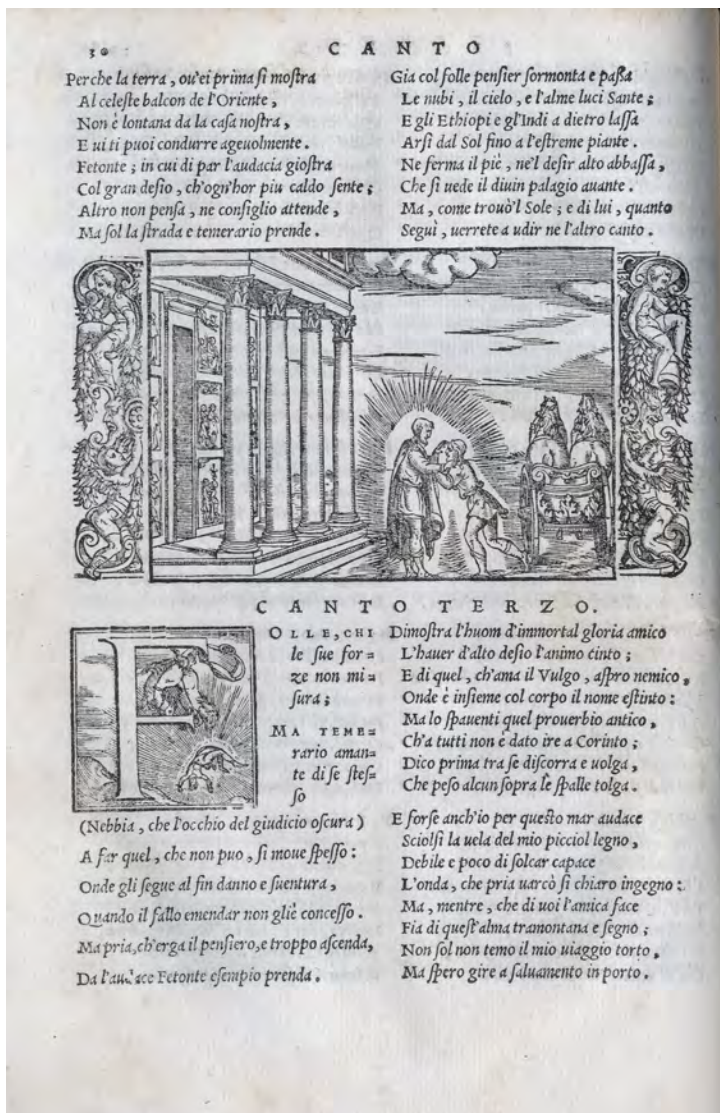 30 CANTO
Perche la terra, ou'ei prima si mostra
Al celeste balcon de l'Oriente,
Non è lontana da la casa nostra,
E ui ti puoi condurre ageuolmente.
Fetonte; in cui di par l'audacia giostra
Col gran desio, ch'ogn'hor piu caldo sente;
Altro non pensa, ne consiglio attende,
Ma sol la strada e temerario prende.
Gia col folle pensier sormonta e passa
Le nubi, il cielo, e l'alme luci Sante;
E gli Ethiopi e gl'Indi a dietro lassa
Arsi dal Sol fino a l'estreme piante.
Ne ferma il piè, ne'l desir alto abbassa,
Che si uede il diuin palagio auante.
Ma, come trouò'l Sole; e di lui, quanto
Seguì, uerrete a udir ne l'altro canto.
CANTO TERZO.
FOLLE, CHI
le sue for=
ze non mi=
sura;
MA TEME=
rario aman=
te di se stes=
so
(Nebbia, che l'occhio del giudicio oscura)
A far quel, che non puo, si moue spesso:
Onde gli segue al fin danno e suentura,
Quando il fallo emendar non gliè concesso.
Ma pria, ch'erga il pensiero, e troppo ascenda,
Da l'audace Fetonte esempio prenda.
Dimostra l'huom d'immortal gloria amico
L'hauer d'alto desio l'animo cinto;
E di quel, ch'ama il Vulgo, aspro nemico,
Onde è insieme col corpo il nome estinto:
Ma lo spauenti quel prouerbio antico,
Ch'a tutti non è dato ire a Corinto;
Dico prima tra se discorra e uolga,
Che peso alcun sopra le spalle tolga.
E forse anch'io per questo mar audace
Sciolsi la uela del mio picciol legno,
Debile e poco di solcar capace
L'onda, che pria uarcò si chiaro ingegno:
Ma, mentre, che di uoi l'amica face
Fia di quest'alma tramontana e segno;
Non sol non temo il mio uiaggio torto,
Ma spero gire a saluamento in porto.